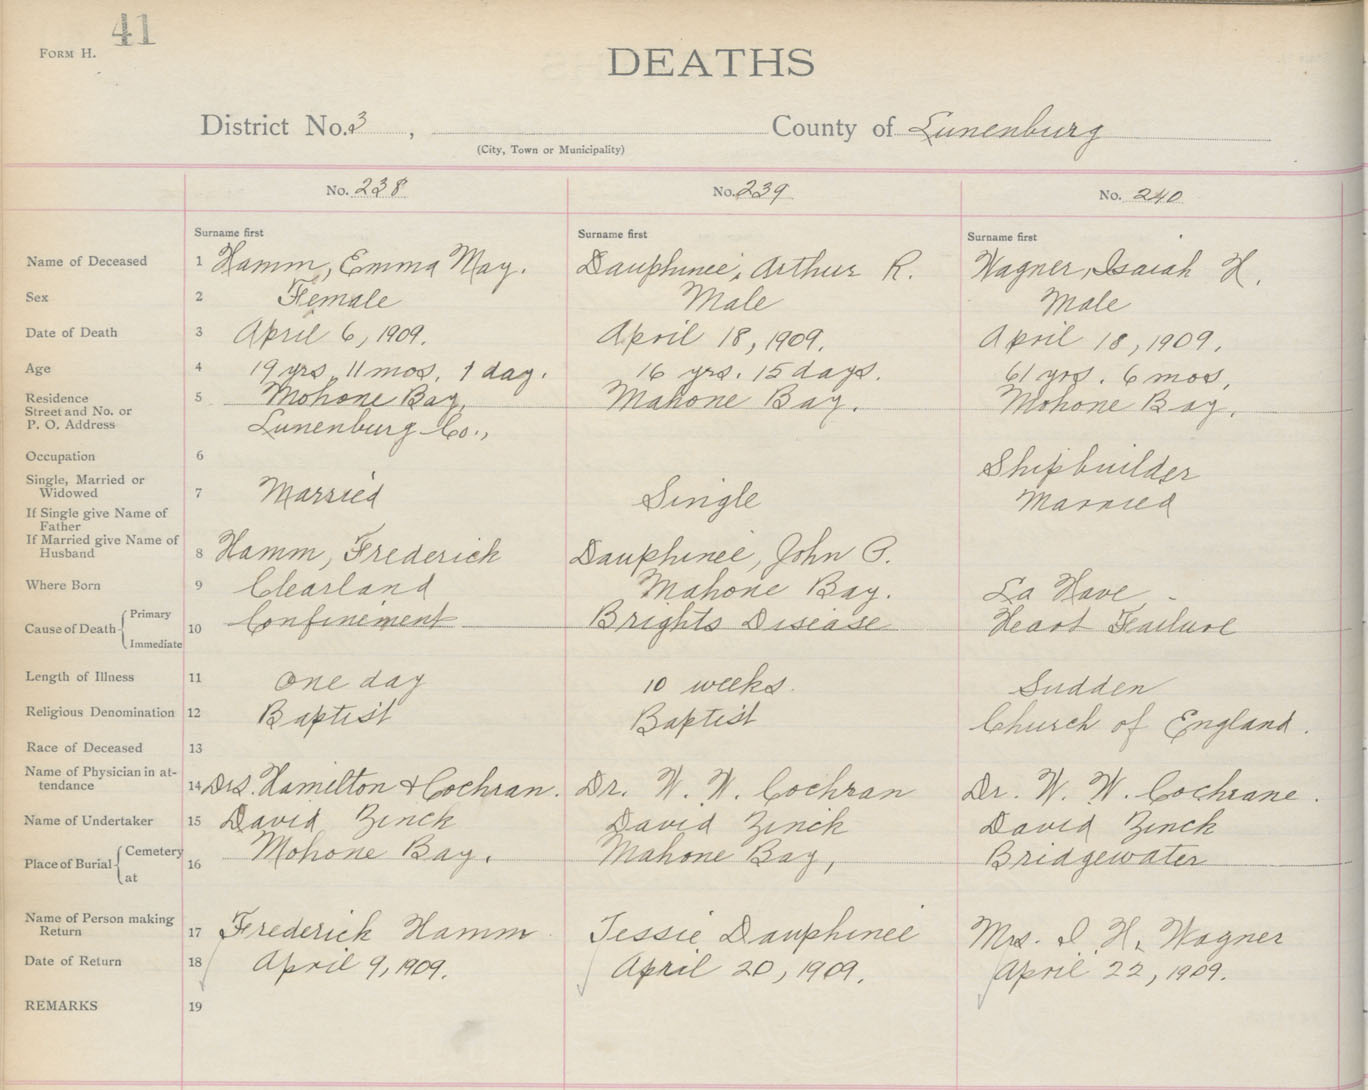 41
FORM H.
DEATHS
District No. 3 , County of Lunenburg
(City, Town or Municipality)
No. 238 No. 239 No. 240
Surname first Surname first Surname first
Name of Deceased 1 Hamm, Emma May. Dauphinee, Arthur R. Wagner, Isaiah H.
Sex 2 Female Male Male
Date of Death 3 April 6, 1909. April 18, 1909. April 18, 1909.
Age 4 19 yrs, 11 mos, 1 day. 16 yrs. 15 days. 61 yrs. 6 mos,
Residence 5 Mohone Bay, Mahone Bay. Mohone Bay.
Street and No. or
P. O. Address Lunenburg Co.,
Occupation 6 Shipbuilder
Single, Married or
Widowed 7 Married Single Married
If Single give Name of
Father
If Married give Name of
Husband 8 Hamm, Frederick Dauphinee, John P.
Where Born 9 Clearland Mahone Bay. La Have -
Cause of Death Primary 10 Confinement Brights Disease Heart Failure
Immediate
Length of Illness 11 one day 10 weeks. Sudden
Religious Denomination 12 Baptist Baptist Church of England.
Race of Deceased 13
Name of Physician in at-
tendance 14 Drs. Hamilton & Cochran. Dr. W. W. Cochran Dr. W. W. Cochrane.
Name of Undertaker 15 David Zinck David Zinck David Zinck
Place of Burial Cemetery 16 Mohone Bay. Mahone Bay, Bridgewater
at
Name of Person making
Return 17 Frederick Hamm Jessie Dauphinee Mrs. I. H. Wagner
Date of Return 18 April 9, 1909. April 20, 1909. April 22, 1909.
REMARKS 19